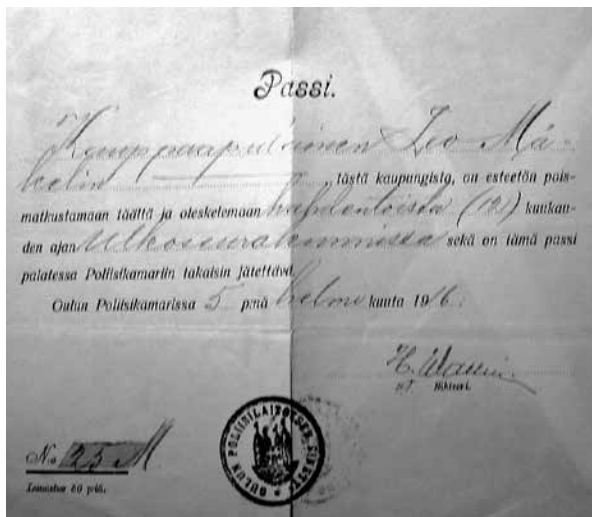 Passi.
Kauppaapulainen Leo Mä-
kelin tästä kaupungista, on esteetön pois-
matkustamaan täältä ja oleskelemaan kahdentoista (12) kuukau-
den ajan Ulkoseurakunnissa sekä on tämä passi
palatessa Poliisikamariin takaisin jätettävä.
Oulun Poliisikamarissa 5 p:nä helmi kuuta 1916.
H. Wallin
v. t. Sihteeri.
OULUN POLIISILAITOKSEN
No 25 M
Lunastus 50 p:iä.